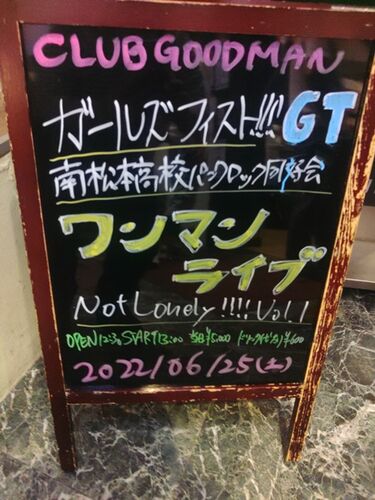 CLUB GOODMAN
ガールズフィスト!!!! GT
南松本高校パンクロック同好会
ワンマン
ライブ
Not Lonely !!!! Vol.1
OPEN 12:30 START 13:00 当日¥5,000 (ドリンク代別¥600)
2022/06/25(土)